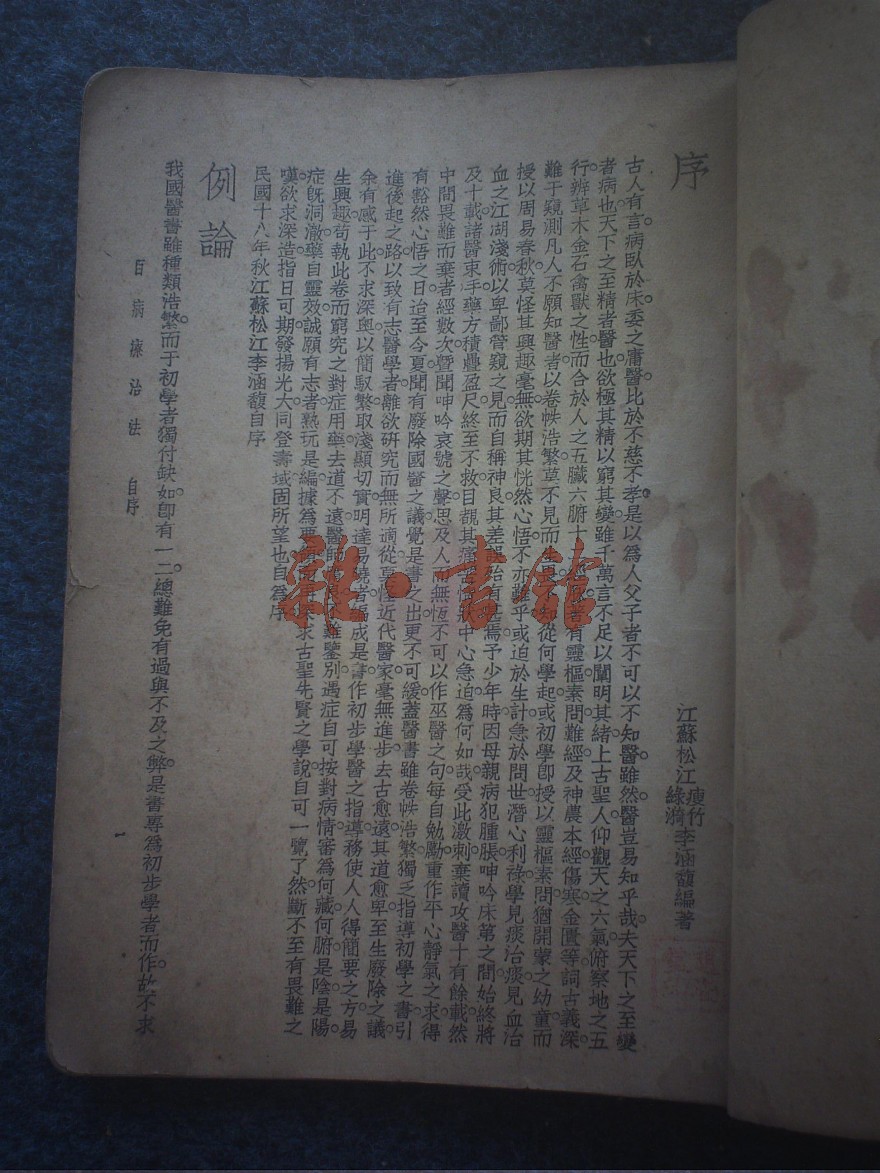 序
江蘇松江
瘦竹
綠漪
李涵馥編著
古人有言病臥於床委之庸醫比於不慈不孝是以為人父子者不可以不知醫雖然醫豈易知乎哉夫天下之至變
者病也天下之至精者醫也欲極其精以窮其變雖千萬言不足以闡明其緒上古聖人仰觀天之六氣俯察地之五
行辨草木金石禽獸之性而合於人之五臟六腑十二經故著有靈樞素問難經及神農本經傷寒金匱等詞古義深
難于窺測凡人不願知醫者以卷帙浩繁草不見而生畏不知從何學起或初學卽授以靈樞素問猶開蒙之幼童而
授以周易春秋莫怪其興趣毫無欲期其恍然心悟不亦難乎或迫於生計急於問世潛心利祿學見痰治痰見血治
血之江湖淺術以卑鄙管窺之見而自稱神良其差誤殆有甚焉予少年時因母親病犯腫脹呻吟床第之間始終將
及十載諸醫束手藥方積疊盈尺終至不救目覩其痛苦情狀中心急迫為何如哉受此激刺棄讀攻醫十有餘載然
中間畏難而棄者經數次暨聞呻吟哀號之聲思及人而無恆不可以作巫醫之句每自勉勵重作平心靜氣之求得
有豁然心悟之日迨至今夏聞有廢除國醫之議覺是書之出更不可緩蓋醫書雖卷帙浩繁獨乏指導初學之書引
進後起之路以致有志醫學者離欲研究而無所適從莫怪近代醫家毫無進步去古愈遠其道愈卑至生廢除之議
余有感于此不求深奧以簡馭繁取淺顯切實明達易曉者編成是書作初步學醫之指導務使人人得簡要之方易
生興趣苟執此卷而窮究之對症用藥去道不遠醫師良不難鑒別遇症自可按對病情審為何藏何腑是陰是陽
症旣洞澈藥自靈效誠願有志者熟玩是編據為要求古聖先賢之學說自可一覽了然斷不至有畏難之
嘆欲求深造指日可期發揚光大同登壽域固所望也自為序
民國十八年秋江蘇松江李涵馥自序
例論
我國醫書雖種類浩繁而于初學者獨付缺如卽有一二總難免有過與不及之弊是書專為初步學者而作故不求
百病療治法 自序
一
雜·書館